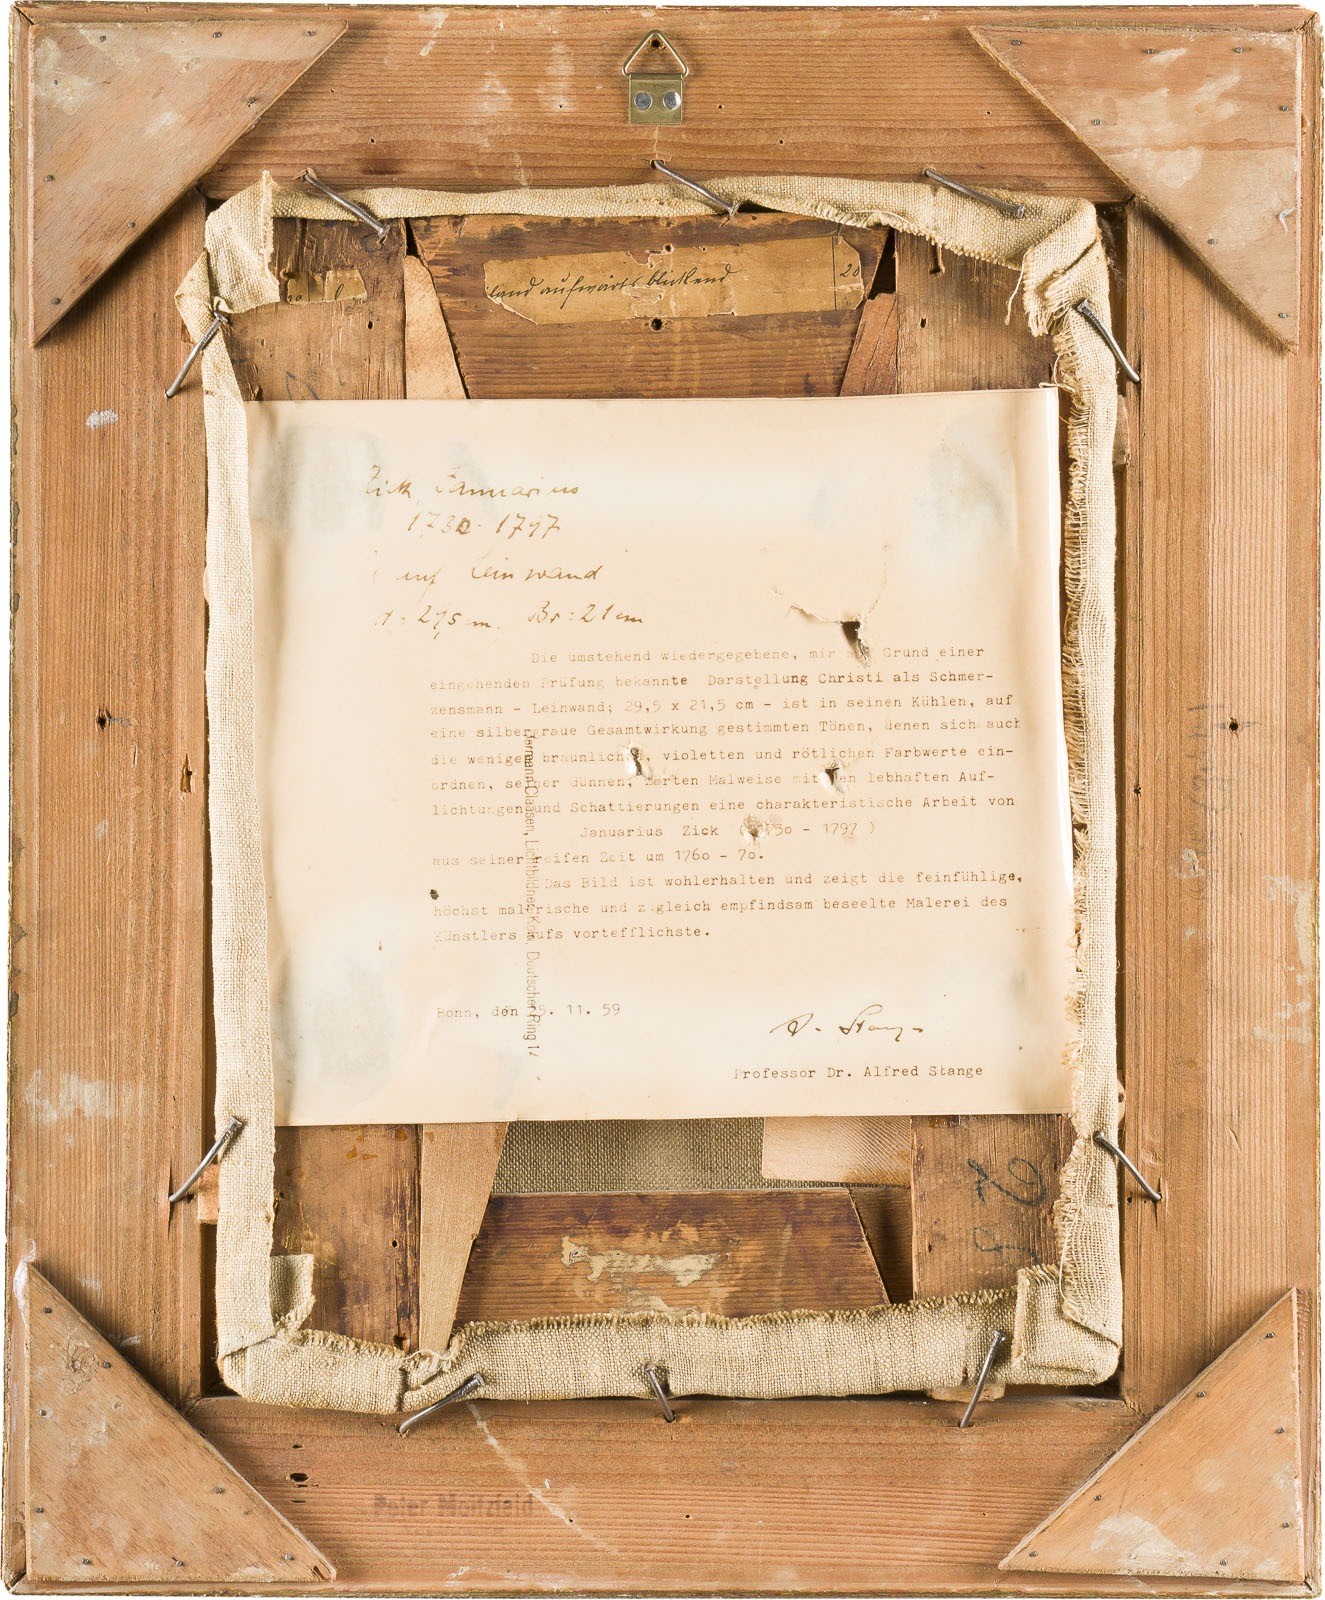 land aufwärts blickend 20
Zick Januarius
1730-1797
auf Leinwand
H: 29,5 cm, Br: 21 cm
Die umstehend wiedergegebene, mir auf Grund einer
eingehenden Prüfung bekannte Darstellung Christi als Schmer-
zensmann - Leinwand; 29,5 x 21,5 cm - ist in seinen Kühlen, auf
eine silbergraue Gesamtwirkung gestimmten Tönen, denen sich auch
die wenigen bräunlichen, violetten und rötlichen Farbwerte ein-
ordnen, seiner dünnen, zarten Malweise mit den lebhaften Auf-
lichtungen und Schattierungen eine charakteristische Arbeit von
Januarius Zick (1730 - 1797 )
aus seiner reifen Zeit um 1760 - 70.
Das Bild ist wohlerhalten und zeigt die feinfühlige,
höchst malerische und zugleich empfindsam beseelte Malerei des
Künstlers aufs vortefflichste.
Hermann Claasen, Lichtbildner, Köln, Deutscher Ring 1
Bonn, den 5. 11. 59
A. Stange
Professor Dr. Alfred Stange
Peter